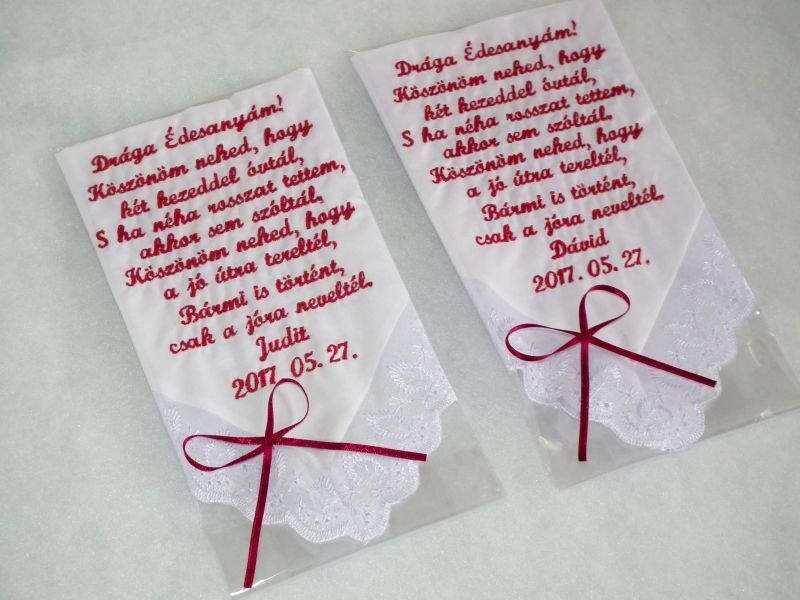 Drága Édesanyám!
Köszönöm neked, hogy
két kezeddel óvtál,
S ha néha rosszat tettem,
akkor sem szóltál.
Köszönöm neked, hogy
a jó útra tereltél,
Bármi is történt,
csak a jóra neveltél.
Judit
2017. 05. 27.
Drága Édesanyám!
Köszönöm neked, hogy
két kezeddel óvtál,
S ha néha rosszat tettem,
akkor sem szóltál.
Köszönöm neked, hogy
a jó útra tereltél,
Bármi is történt,
csak a jóra neveltél.
Dávid
2017. 05. 27.